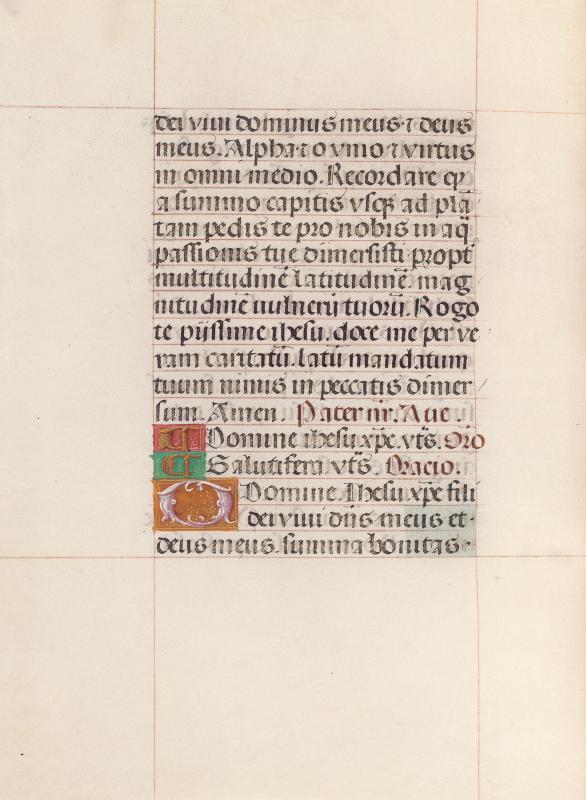 dei viui dominus meus ⁊ deus
meus. Alpha ⁊ o vnio ⁊ virtus
in omni medio. Recordare qꝛ
a summo capitis vsqꝫ ad plā
tam pedis te pro nobis in aq̄
passionis tue dimersisti propt̄
multitudinē latitudinē. mag
nitudinē uulnerū tuorū. Rogo
te pijssime ihesu. doce me per ve
ram caritatū. latū mandatum
tuum nimis in peccatis dimer
sum. Amen. Pater nr̄. Aue
A Domine ihesu xp̄e. vt̄s. Oro
Et Salutifera. vt̄s. Oracio.
O Domine. Ihesu xp̄e fili
dei viui dn̄s meus et
deus meus. summa bonitas.